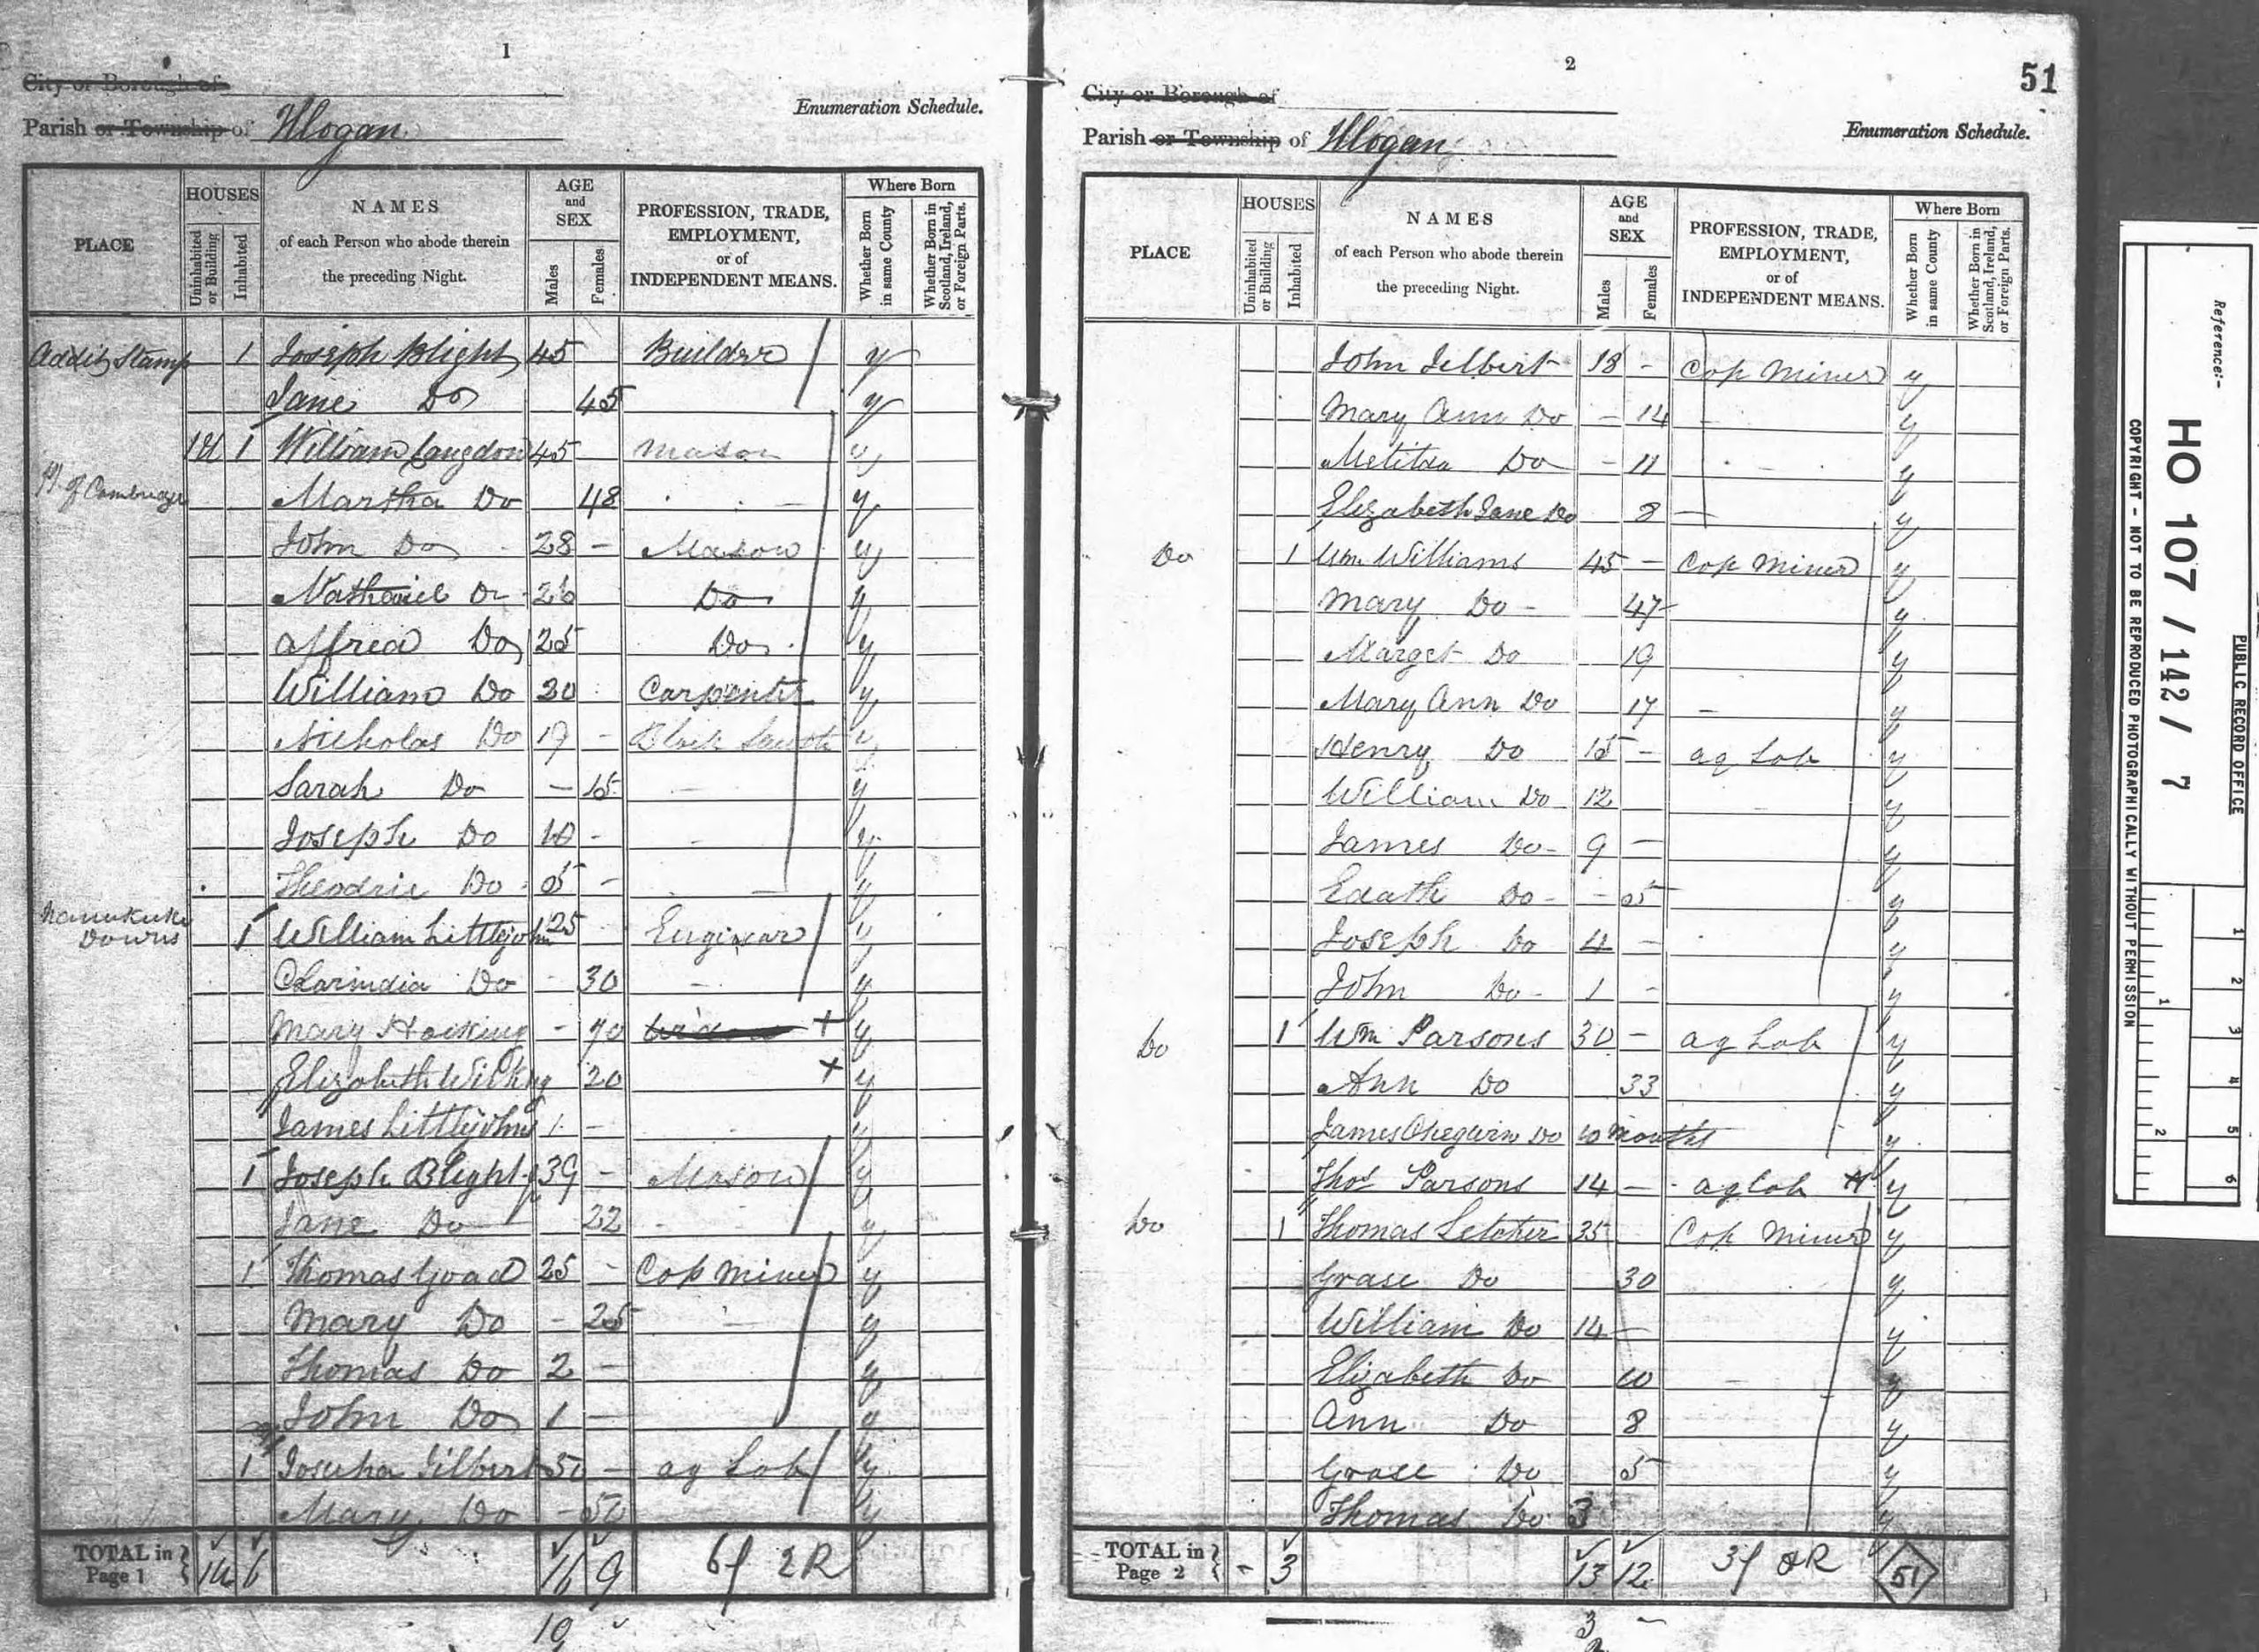 1
City or Borough of
Enumeration Schedule.
Parish or Township of Illogan
PLACE
HOUSES
Uninhabited or Building
Inhabited
NAMES
of each Person who abode therein
the preceding Night.
AGE
and
SEX
Males
Females
PROFESSION, TRADE,
EMPLOYMENT,
or of
INDEPENDENT MEANS.
Where Born
Whether Born in same County
Whether Born in Scotland, Ireland, or Foreign Parts.
Addit Stamp 1 Joseph Blight 45 Builder y
Jane Do 45 y
1U 1 William Langdon 45 Mason y
Martha Do 48 y
John Do 28 - Mason y
Nathaniel Do 26 Do y
Alfred Do 25 Do y
William Do 20 Carpenter y
Nicholas Do 17 - Black Smith y
Sarah Do - 15 - y
Joseph Do 10 - - y
Do 5 - - y
Downs 1 William Littlejohn 25 Engineer y
Clarindia Do - 30 - y
Mary Hocking - 70 + y
Elizabeth 20 + y
James Littlejohns 1 - y
1 Joseph Blight 39 - Mason y
Jane Do 22 - y
1 Thomas Goad 25 - Cop Miner y
Mary Do - 25 - y
Thomas Do 2 - y
John Do 1 - y
1 Gilbert 50 - ag Lab y
Mary Do - 50 y
TOTAL in Page 1 1U 6 16 9 6f 2R
10
2
51
City or Borough of
Enumeration Schedule.
Parish or Township of Illogan
PLACE
HOUSES
Uninhabited or Building
Inhabited
NAMES
of each Person who abode therein
the preceding Night.
AGE
and
SEX
Males
Females
PROFESSION, TRADE,
EMPLOYMENT,
or of
INDEPENDENT MEANS.
Where Born
Whether Born in same County
Whether Born in Scotland, Ireland, or Foreign Parts.
John Gilbert 18 - Cop Miner y
Mary Ann Do - 14 - y
Do - 11 - y
Elizabeth Jane Do 8 - y
Do 1 Wm Williams 45 - Cop Miner y
Mary Do - 47 y
Marget Do 19 y
Mary Ann Do 17 - y
Henry Do 15 - ag Lab y
William Do 12 y
James Do - 9 - y
Edath Do - - 5 y
Joseph Do 4 - y
John Do - 1 - y
Do 1 Wm Parsons 30 - ag Lab y
Ann Do 33 y
James Chegwin Do 10 months y
Thos Parsons 14 - ag lab y
Do 1 Thomas Letcher 35 Cop Miner y
Grase Do 30 y
William Do 14 - y
Elizabeth Do 10 y
Ann Do 8 y
Grase Do 5 y
Thomas Do 3 y
TOTAL in Page 2 - 3 13 12 3f 0R 51
3
Reference:-
HO 107 / 142 / 7
PUBLIC RECORD OFFICE
COPYRIGHT - NOT TO BE REPRODUCED PHOTOGRAPHICALLY WITHOUT PERMISSION
1 2 3 4 5 6
1 2